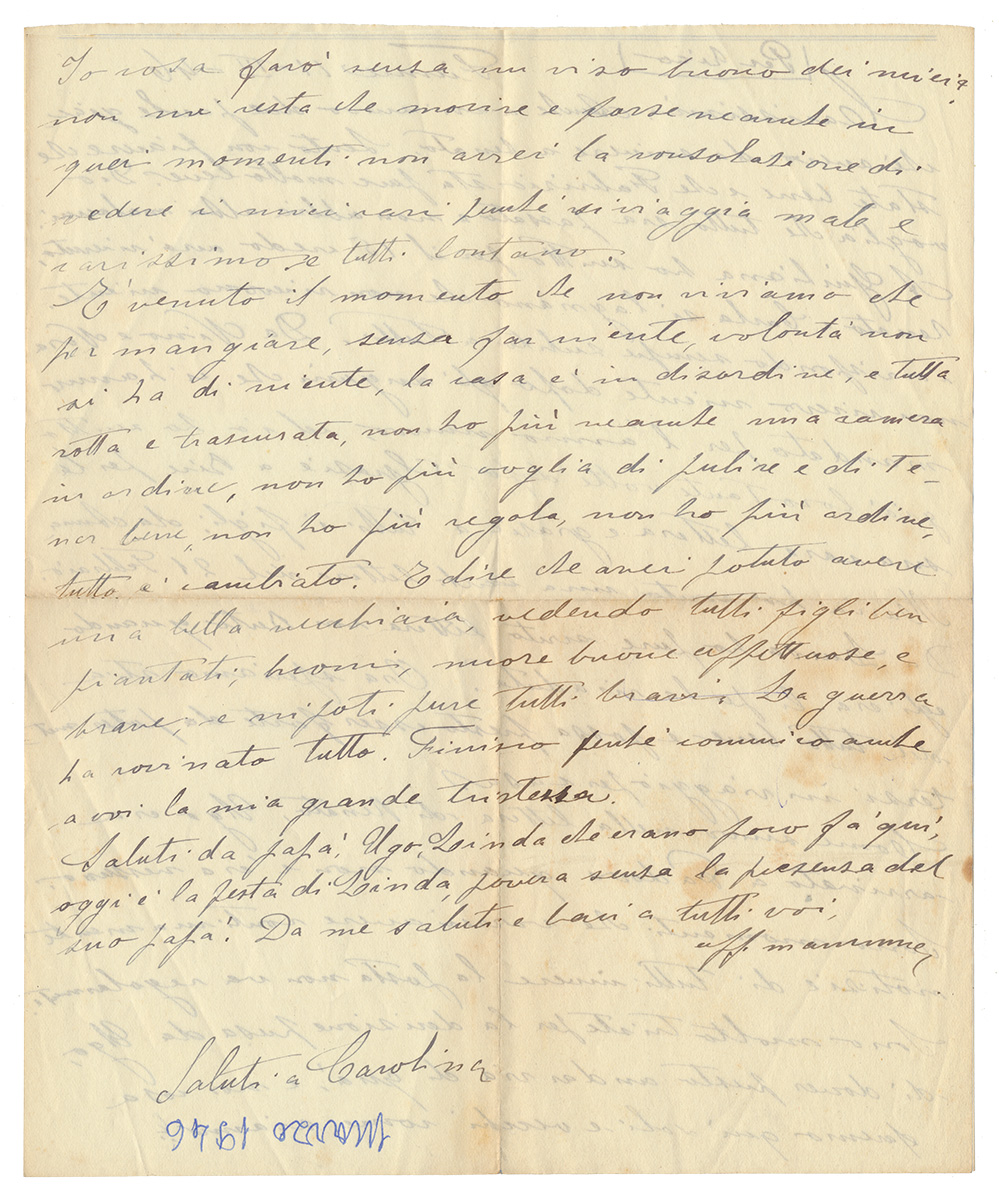 Io cosa farò senza un viso buono dei miei?
non mi resta che morire e forse neanche in
quei momenti non avrei la consolazione di
vedere i miei cari perché si viaggia male e
carissimo e tutti lontano.
E' venuto il momento che non viviamo che
per mangiare, senza far niente, volontà non
si ha di niente, la casa è in disordine, e tutta
rotta e trascurata, non ho più neanche una camera
in ordine, non ho più voglia di pulire e di te-
ner bene, non ho più regola, non ho più ordine,
tutto è cambiato. E dire che avrei potuto avere
una bella vecchiaia, vedendo tutti figli ben
piantati, buoni, nuore buone affettuose, e
brave, e nipoti pure tutti bravi. La guerra
ha rovinato tutto. Finisco perché comunico anche
a voi la mia grande tristezza.
Saluti da papà, Ugo, Linda che erano poco fà quì,
oggi è la festa di Linda, povera senza la presenza del
suo papà! Da me saluti e baci a tutti voi,
aff. mamma
Saluti a Carolina
Marzo 1946